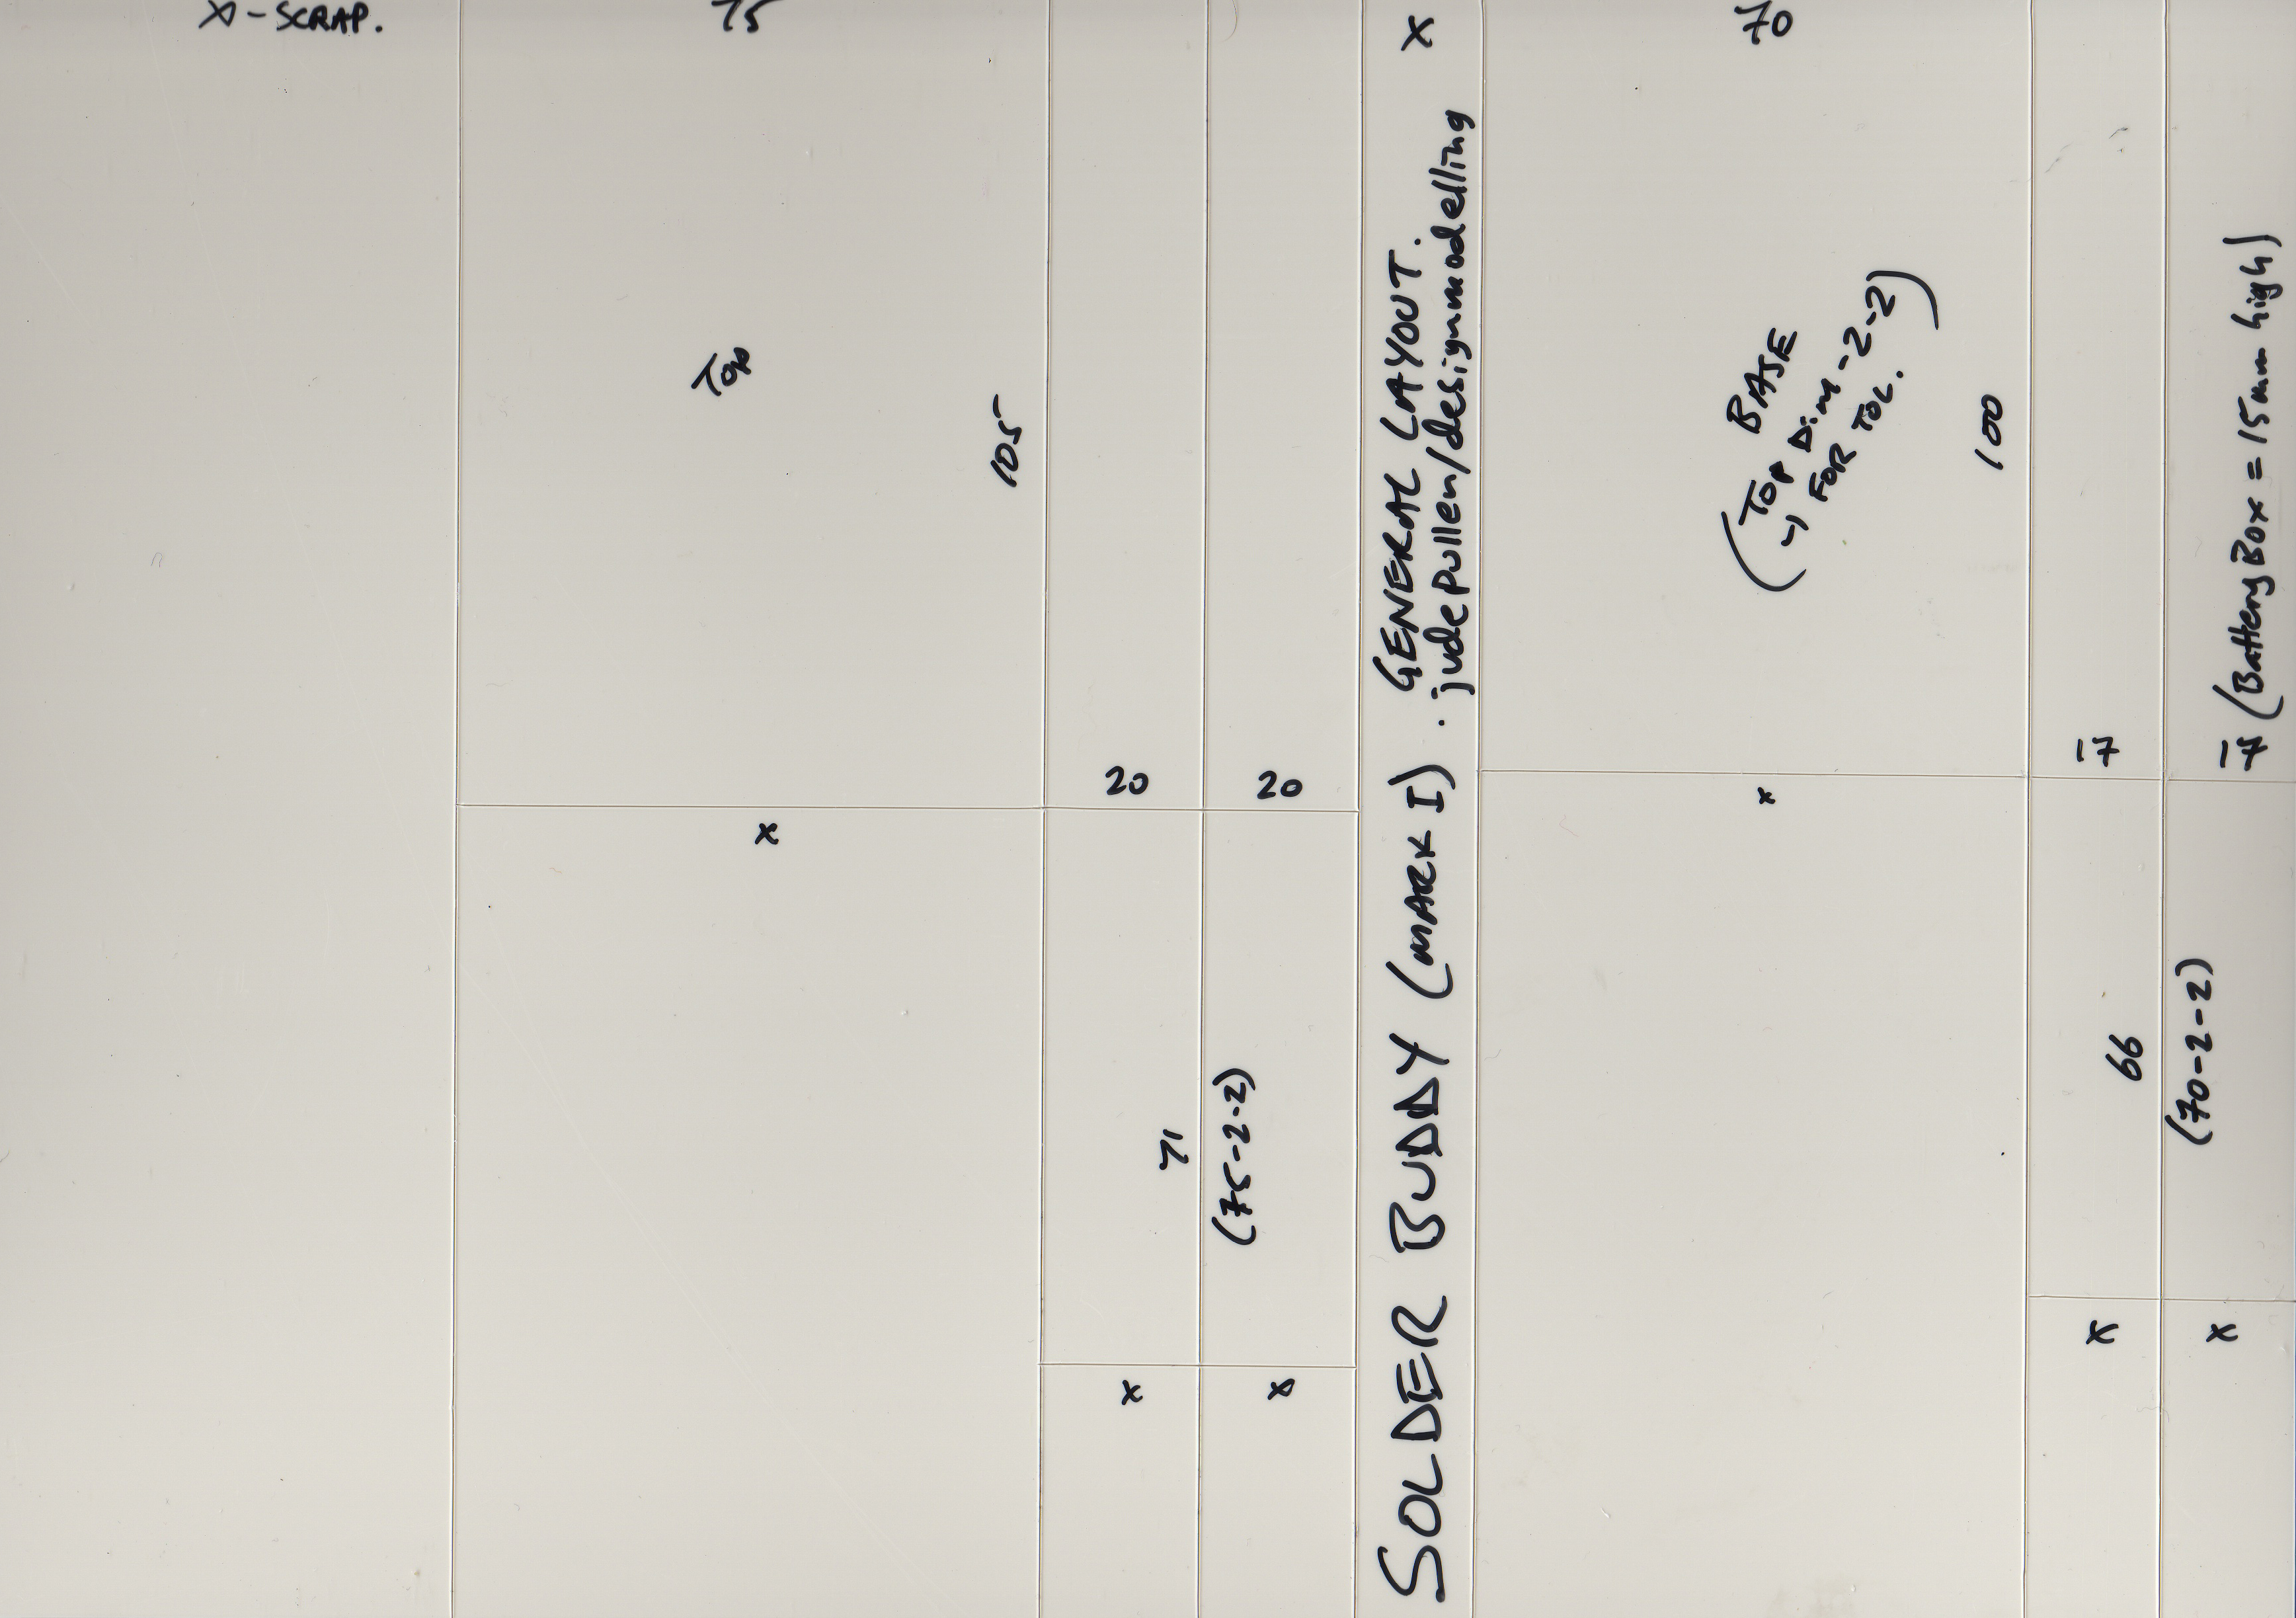 X - SCRAP.
75
Top
105
20
20
x
71
(75-2-2)
x
x
SOLDER BUDDY (MARK I). GENERAL LAYOUT.
judepullen/designmodelling
x
70
BASE
(TOP Dim -2-2)
↳ FOR TOL.
100
x
17
17 (Battery Box = 15mm high)
66
(70-2-2)
x
x